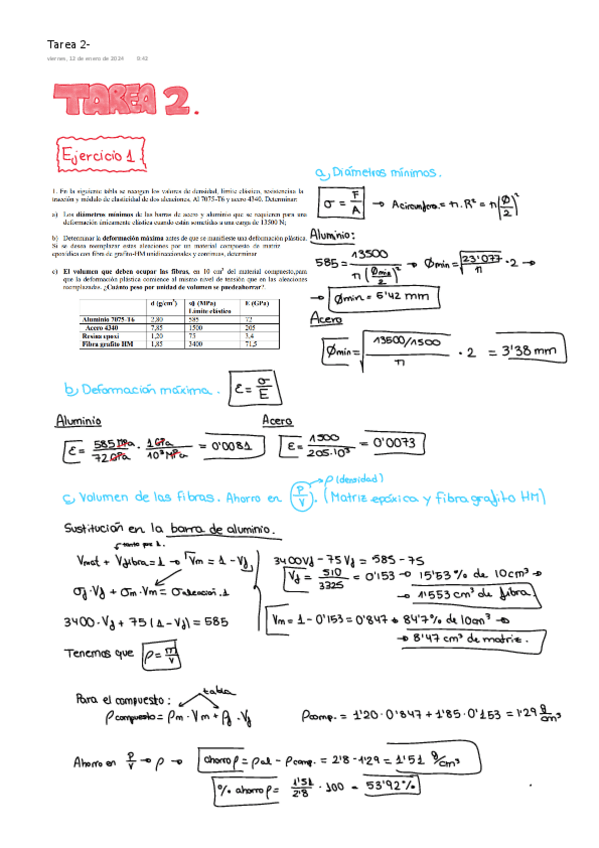 Tarea 2-
viernes, 12 de enero de 2024    8:42
TAREA 2.
Ejercicio 1.
1. En la siguiente tabla se recogen los valores de densidad, límite elástico, resistencia a la
tracción y módulo de elasticidad de dos aleaciones, Al 7075-T6 y acero 4340. Determinar:
a) Los diámetros mínimos de las barras de acero y aluminio que se requieren para una
deformación únicamente elástica cuando están sometidas a una carga de 13500 N;
b) Determinar la deformación máxima antes de que se manifieste una deformación plástica.
Si se desea reemplazar estas aleaciones por un material compuesto de matriz
epoxídica con fibra de grafito-HM unidireccionales y continuas, determinar
c) El volumen que deben ocupar las fibras, en 10 cm³ del material compuesto, para
que la deformación plástica comience al mismo nivel de tensión que en las aleaciones
reemplazadas. ¿Cuánto peso por unidad de volumen se puede ahorrar?.
d (g/cm³) σy (MPa) Límite elástico E (GPa)
Aluminio 7075-T6 2,80 585 72
Acero 4340 7,85 1500 205
Resina epoxi 1,20 75 3,4
Fibra grafito HM 1,85 3400 71,5
a) Diámetros mínimos.
σ = F/A → A circunfera. = π · R² = π (Ø/2)²
Aluminio:
585 = 13500 / π (Ømin/2)² → Ømin = √(23'077/π) · 2 →
→ Ømin = 5'42 mm
Acero
Ømin = √((13500/1500)/π) · 2 = 3'38 mm
b) Deformación máxima. ε = σ/E
Aluminio Acero
ε = 585 MPa / 72 GPa · 1 GPa / 10³ MPa = 0'0081 ε = 1500 / 205·10³ = 0'0073
→ ρ (densidad)
c) Volumen de las fibras. Ahorro en (P/V). (Matriz epóxica y fibra grafito HM)
Sustitución en la barra de aluminio.
tanto por 1.
Vmat + Vfibra = 1 → Vm = 1 - Vf
σf·Vf + σm·Vm = σaleación·1
3400·Vf + 75 (1 - Vf) = 585
3400Vf - 75Vf = 585 - 75
Vf = 510/3325 = 0'153 → 15'53% de 10cm³ →
→ 1'553 cm³ de fibra.
Vm = 1 - 0'153 = 0'847 → 84'7% de 10cm³ →
→ 8'47 cm³ de matriz.
Tenemos que ρ = m/V
Para el compuesto: tabla
ρcompuesto = ρm · Vm + ρf · Vf ρcomp. = 1'20·0'847 + 1'85·0'153 = 1'29 g/cm³
Ahorro en P/V → ρ → ahorro ρ = ρal - ρcomp. = 2'8 - 1'29 = 1'51 g/cm³
% ahorro ρ = 1'51/2'8 · 100 = 53'92%